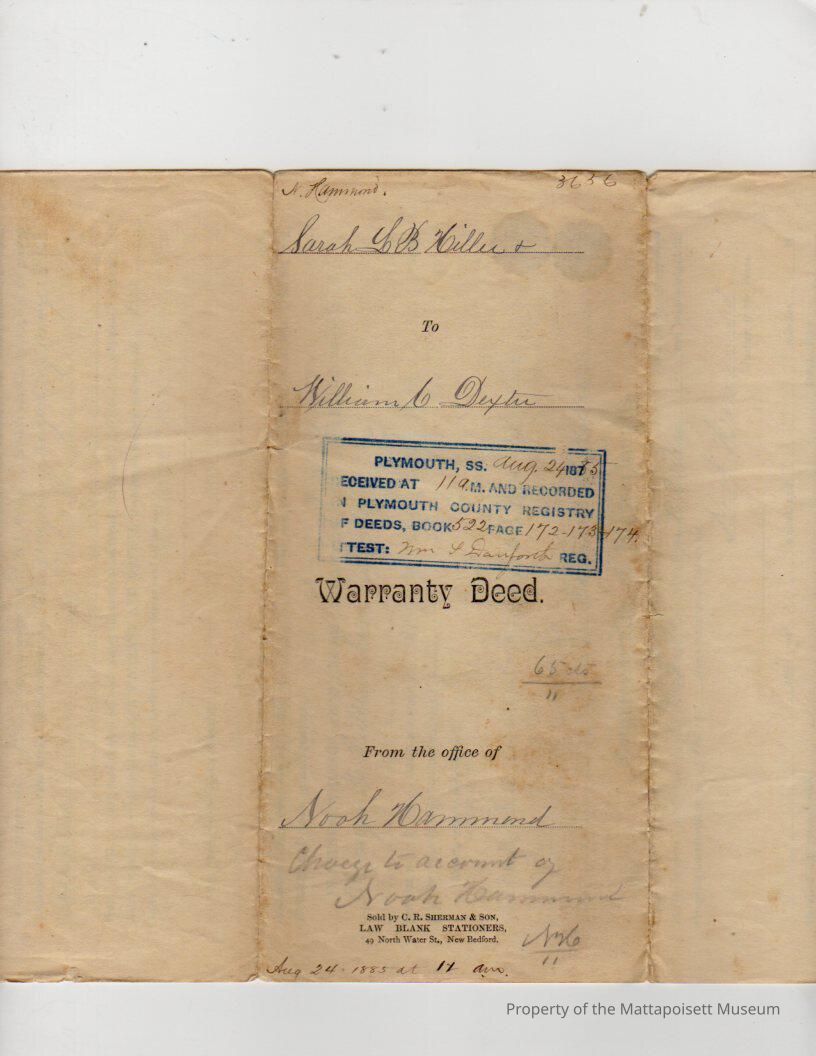 N. Hammond.
3636
Sarah L B Hiller &
To
William C Dexter
PLYMOUTH, SS. Aug. 24 1885
ECEIVED AT 11 A.M. AND RECORDED
N PLYMOUTH COUNTY REGISTRY
F DEEDS, BOOK 522 PAGE 172-173-174.
TTEST: Wm S Danforth REG.
Warranty Deed.
65 cts
"
From the office of
Noah Hammond
Charge to account of
Noah Hammond
Sold by C. R. SHERMAN & SON,
LAW BLANK STATIONERS,
49 North Water St., New Bedford.
"
Aug 24-1885 at 11 am.
Property of the Mattapoisett Museum